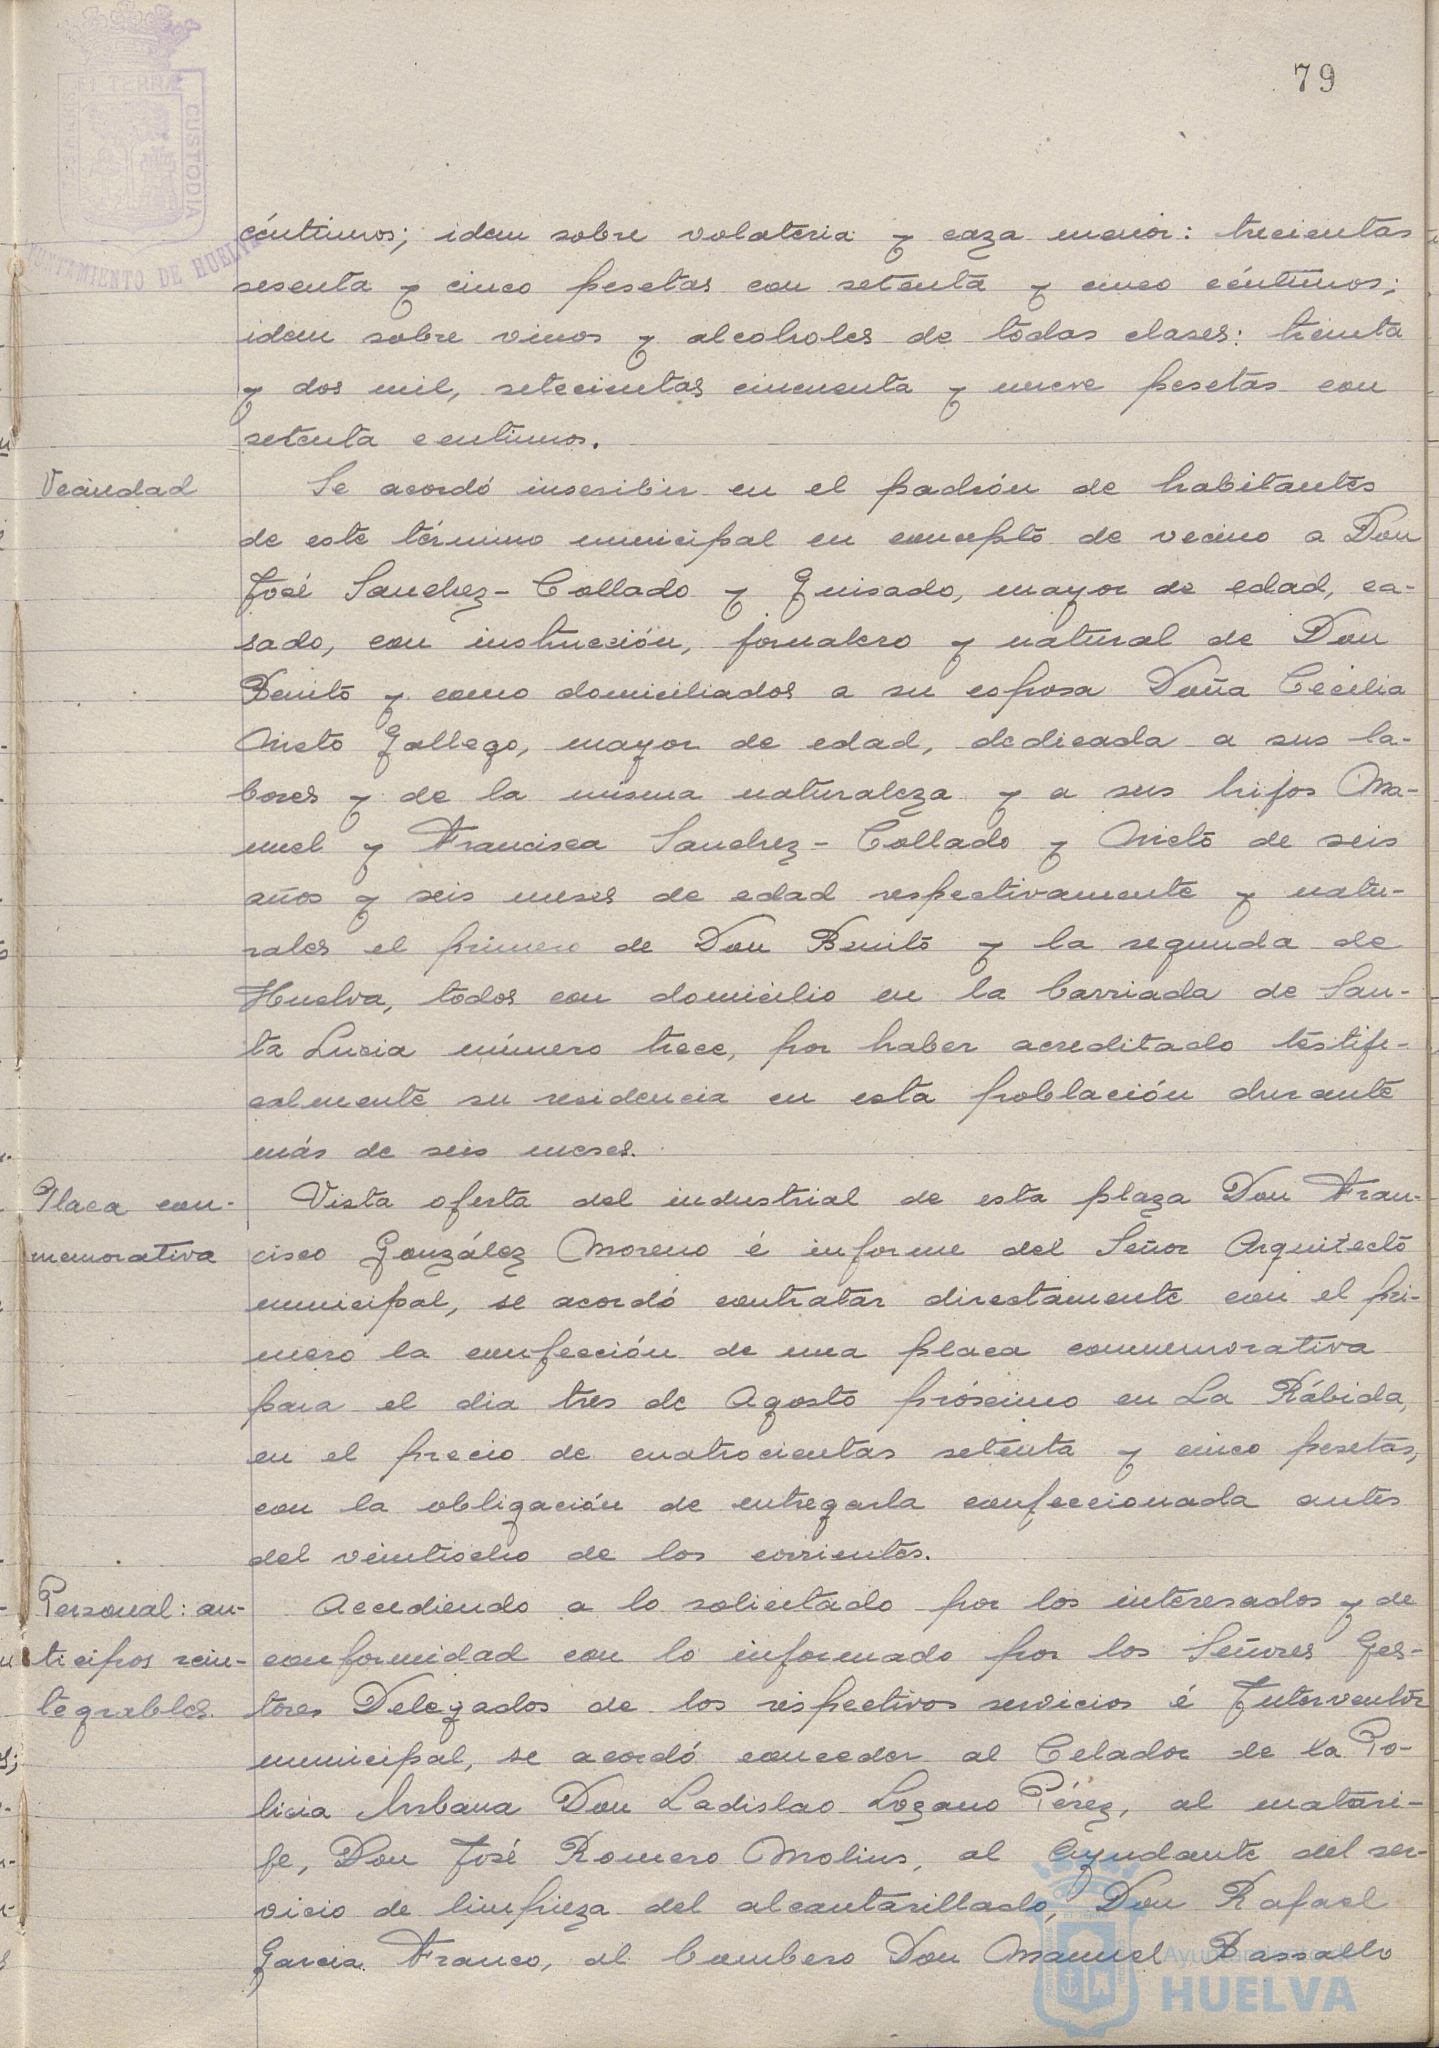 79
ET TERRÆ
CUSTODIA
AYUNTAMIENTO DE HUELVA
céntimos; idem sobre volateria y caza menor: trecientas
sesenta y cinco pesetas con setenta y cinco céntimos;
idem sobre vinos y alcoholes de todas clases: treinta
y dos mil, setecientas cincuenta y nueve pesetas con
setenta centimos.
Vecindad
Se acordó inscribir en el padrón de habitantes
de este término municipal en concepto de vecino a Don
José Sanchez-Collado y Guisado, mayor de edad, ca-
sado, con instrucción, jornalero y natural de Don
Benito y como domiciliados a su esposa Doña Cecilia
Nieto Gallego, mayor de edad, dedicada a sus la-
bores y de la misma naturaleza y a sus hijos Ma-
nuel y Francisca Sanchez-Collado y Nieto de seis
años y seis meses de edad respectivamente y natu-
rales el primero de Don Benito y la segunda de
Huelva, todos con domicilio en la barriada de San-
ta Lucia número trece, por haber acreditado testifi-
calmente su residencia en esta población durante
más de seis meses.
Placa con-
memorativa
Vista oferta del industrial de esta plaza Don Fran-
cisco González Moreno é informe del Señor Arquitecto
municipal, se acordó contratar directamente con el pri-
mero la confección de una placa conmemorativa
para el dia tres de Agosto próximo en La Rábida,
en el precio de cuatrocientas setenta y cinco pesetas,
con la obligación de entregarla confeccionada antes
del veintiocho de los corrientes.
Personal: an-
ticipos rein-
tegrables.
Accediendo a lo solicitado por los interesados y de
conformidad con lo informado por los Señores Ges-
tores Delegados de los respectivos servicios é Interventor
municipal, se acordó conceder al Celador de la Po-
licia Urbana Don Ladislao Lozano Pérez, al matari-
fe, Don José Romero Molins, al Ayudante del ser-
vicio de limpieza del alcantarillado, Don Rafael
Garcia Franco, al bombero Don Manuel Bassallo
Ayuntamiento de
HUELVA